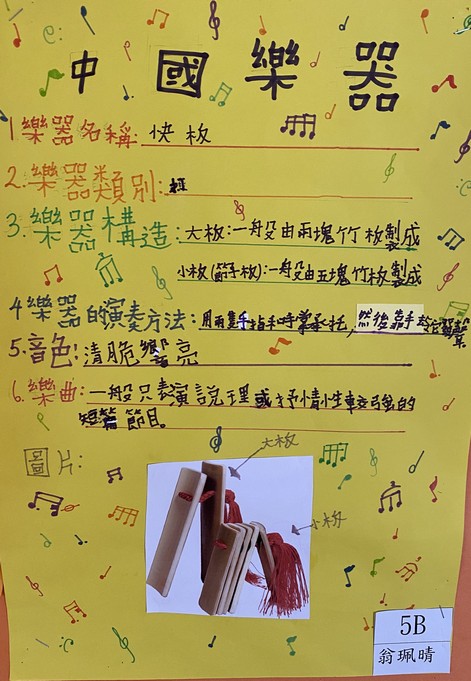 中國樂器
1.樂器名稱:快板
2.樂器類別:
3.樂器構造:大板:一般由兩塊竹板製成
小板(節子板):一般由五塊竹板製成
4.樂器的演奏方法:用兩隻手指和時掌承托,然後靠手
5.音色:清脆響亮
6.樂曲:一般只表演說理或抒情性較強的
短篇節目。
圖片:
大板
小板
5B
翁珮晴